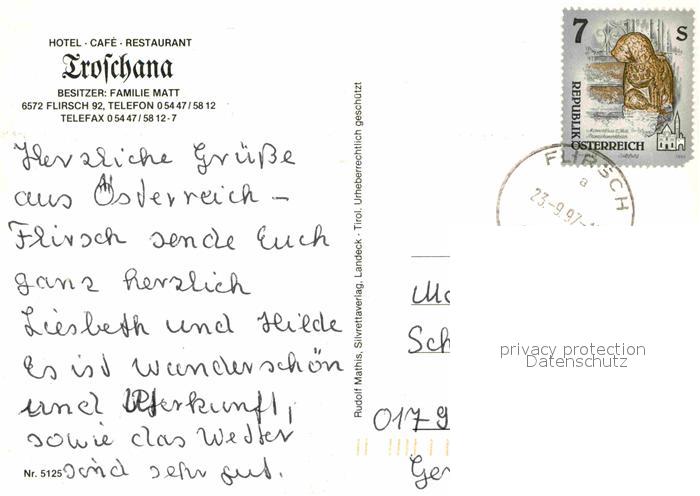 HOTEL · CAFÉ · RESTAURANT
Troschana
BESITZER: FAMILIE MATT
6572 FLIRSCH 92, TELEFON 0 54 47 / 58 12
TELEFAX 0 54 47 / 58 12 - 7
Herzliche Grüße
aus Österreich –
Flirsch sende Euch
ganz herzlich
Liesbeth und Hilde
Es ist wunderschön
und Unterkunft,
sowie das Wetter
sind sehr gut.
Nr. 5125
Rudolf Mathis, Silvrettaverlag, Landeck - Tirol. Urheberrechtlich geschützt
7 S
REPUBLIK
ÖSTERREICH
FLIRSCH
a
23.-9.97-1
Sch
privacy protection
Datenschutz
017 9